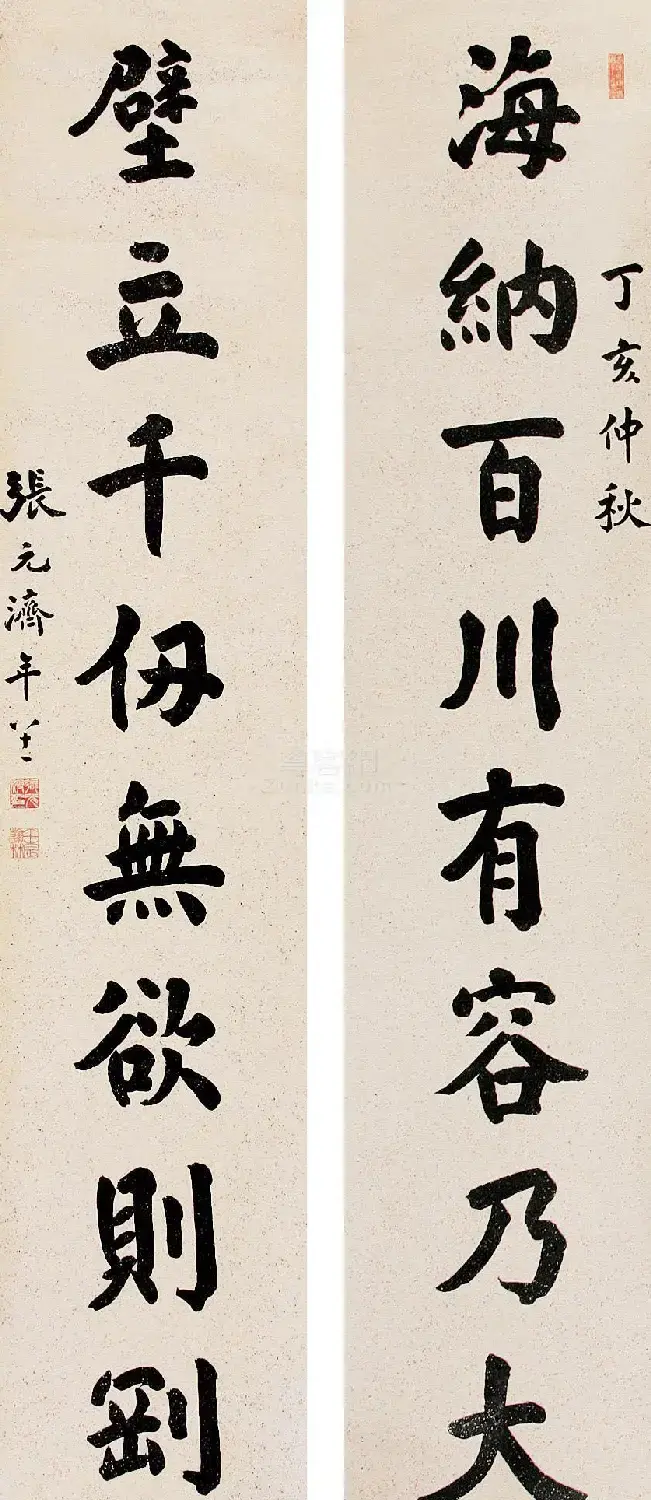 丁亥仲秋
海納百川有容乃大
壁立千仞無欲則剛
張元濟年八十一